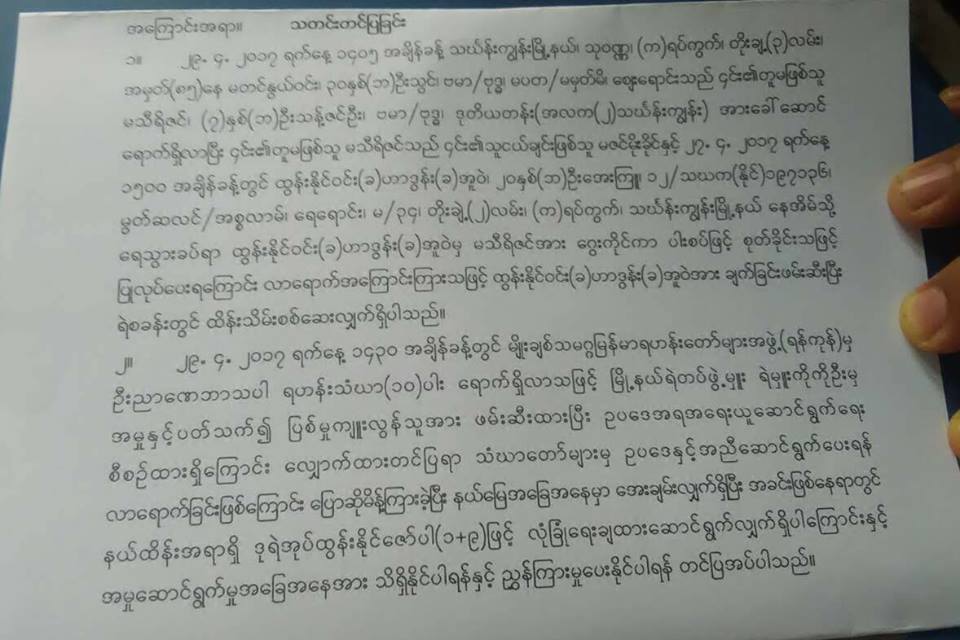 အကြောင်းအရာ။ သတင်းတင်ပြခြင်း
၁။ ၂၉. ၄. ၂၀၁၇ ရက်နေ့ ၁၄၀၅ အချိန်ခန့် သင်္ဃန်းကျွန်းမြို့နယ်၊ သုဝဏ္ဏ၊ (က)ရပ်ကွက်၊ တိုးချဲ့(၃)လမ်း၊
အမှတ်(၈၅)နေ မတင်နွယ်ဝင်း၊ ၃၀နှစ်(ဘ)ဦးသွင်၊ ဗမာ/ဗုဒ္ဓ၊ မပတ/မမှတ်မိ၊ ဈေးရောင်းသည် ၎င်း၏တူမဖြစ်သူ
မသီရိဇင်၊ (၇)နှစ်(ဘ)ဦးသန့်ဇင်ဦး၊ ဗမာ/ဗုဒ္ဓ၊ ဒုတိယတန်း(အလက(၂)သင်္ဃန်းကျွန်း) အားခေါ်ဆောင်
ရောက်ရှိလာပြီး ၎င်း၏တူမဖြစ်သူ မသီရိဇင်သည် ၎င်း၏သူငယ်ချင်းဖြစ်သူ မဇင်မိုးခိုင်နှင့် ၂၇. ၄. ၂၀၁၇ ရက်နေ့
၁၅၀၀ အချိန်ခန့်တွင် ထွန်းနိုင်ဝင်း(ခ)ဟာဒွန်း(ခ)အူဝဲ၊ ၂၀နှစ်(ဘ)ဦးအေးကြူ၊ ၁၂/သဃက(နိုင်)၁၉၇၁၃၆၊
မွတ်ဆလင်/အစ္စလာမ်၊ ရေရောင်း၊ မ/၃၄၊ တိုးချဲ့(၂)လမ်း၊ (က)ရပ်ကွက်၊ သင်္ဃန်းကျွန်းမြို့နယ် နေအိမ်သို့
ရေသွားခပ်ရာ ထွန်းနိုင်ဝင်း(ခ)ဟာဒွန်း(ခ)အူဝဲမှ မသီရိဇင်အား ဂွေးကိုင်ကာ ပါးစပ်ဖြင့် စုတ်ခိုင်းသဖြင့်
ပြုလုပ်ပေးရကြောင်း လာရောက်အကြောင်းကြားသဖြင့် ထွန်းနိုင်ဝင်း(ခ)ဟာဒွန်း(ခ)အူဝဲအား ချက်ခြင်းဖမ်းဆီးပြီး
ရဲစခန်းတွင် ထိန်းသိမ်းစစ်ဆေးလျှက်ရှိပါသည်။
၂။ ၂၉. ၄. ၂၀၁၇ ရက်နေ့ ၁၄၃၀ အချိန်ခန့်တွင် မျိုးချစ်သမဂ္ဂမြန်မာရဟန်းတော်များအဖွဲ့(ရန်ကုန်)မှ
ဦးညာဏောဘာသပါ ရဟန်းသံဃာ(၁၀)ပါး ရောက်ရှိလာသဖြင့် မြို့နယ်ရဲတပ်ဖွဲ့မှူး ရဲမှူးကိုကိုဦးမှ
အမှုနှင့်ပတ်သက်၍ ပြစ်မှုကျူးလွန်သူအား ဖမ်းဆီးထားပြီး ဥပဒေအရအရေးယူဆောင်ရွက်ရေး
စီစဉ်ထားရှိကြောင်း လျှောက်ထားတင်ပြရာ သံဃာတော်များမှ ဥပဒေနှင့်အညီဆောင်ရွက်ပေးရန်
လာရောက်ခြင်းဖြစ်ကြောင်း ပြောဆိုမိန့်ကြားခဲ့ပြီး နယ်မြေအခြေအနေမှာ အေးချမ်းလျှက်ရှိပြီး အခင်းဖြစ်နေရာတွင်
နယ်ထိန်းအရာရှိ ဒုရဲအုပ်ထွန်းနိုင်ဇော်ပါ(၁+၉)ဖြင့် လုံခြုံရေးချထားဆောင်ရွက်လျှက်ရှိပါကြောင်းနှင့်
အမှုဆောင်ရွက်မှုအခြေအနေအား သိရှိနိုင်ပါရန်နှင့် ညွှန်ကြားမှုပေးနိုင်ပါရန် တင်ပြအပ်ပါသည်။